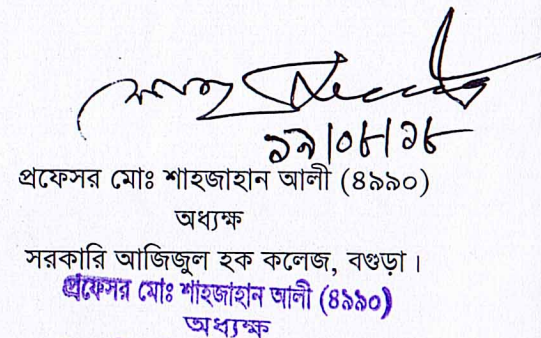 প্রফেসর মোঃ শাহজাহান আলী (৪৯৯০)
অধ্যক্ষ
সরকারি আজিজুল হক কলেজ, বগুড়া।
প্রফেসর মোঃ শাহজাহান আলী (৪৯৯০)
অধ্যক্ষ